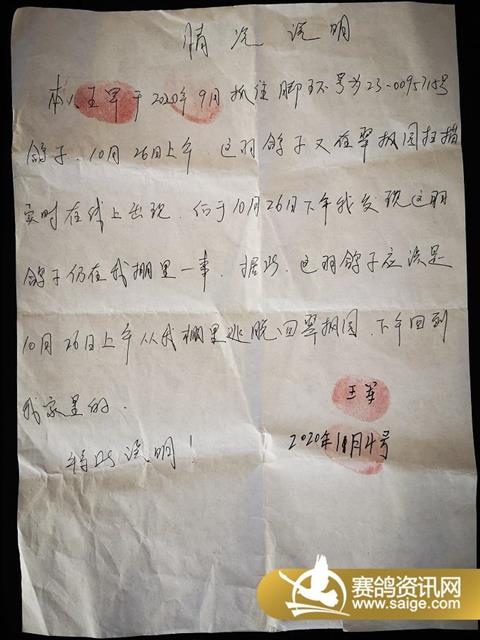 情况说明
本人王军于2020年9月抓住脚环号为23-0095715号
鸽子。10月26日上午,这羽鸽子又在翠极园扫描
实时在线上出现,但于10月26日下午我发现这羽
鸽子仍在我棚里一事。据此,这羽鸽子应该是
10月26日上午从我棚里逃脱回翠极园,下午回到
我家里的.
特此说明!
王军
2020年11月4号
赛鸽资讯网
www.saige.com